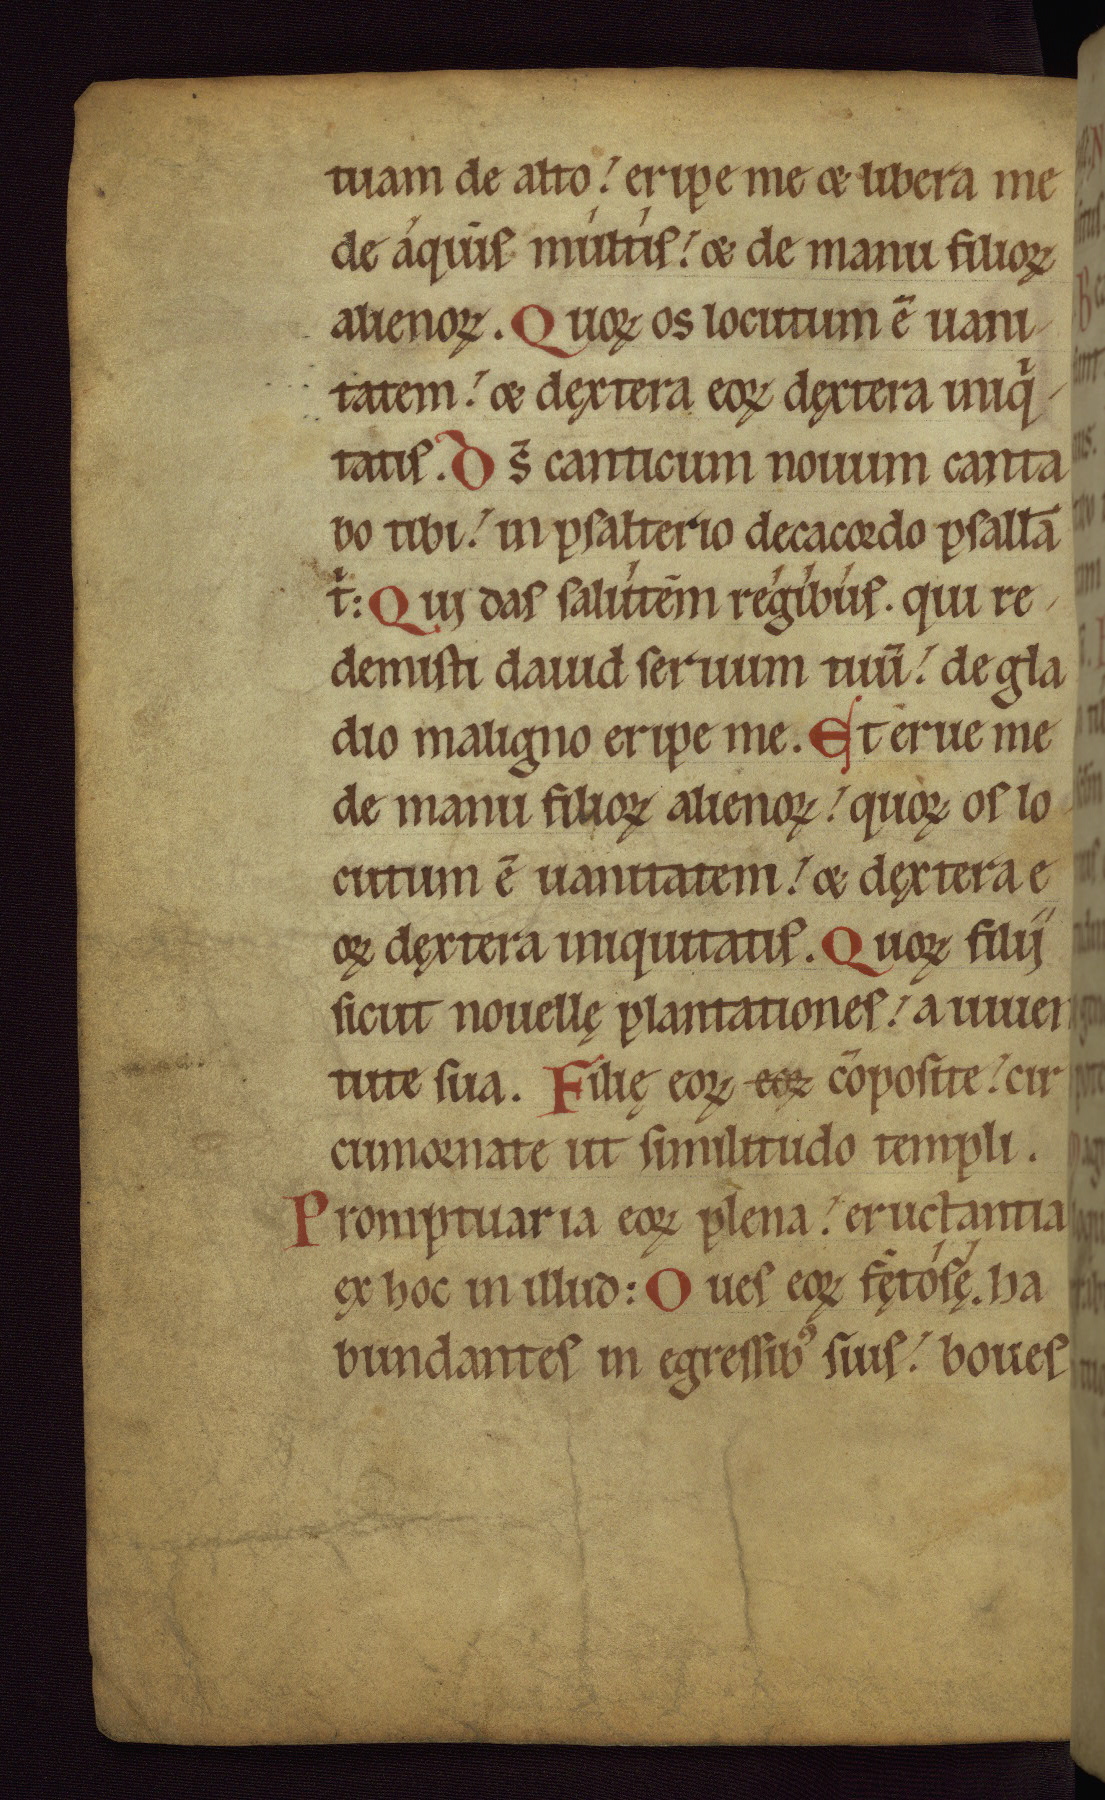 tuam de alto! eripe me & libera me
de áquis múltis! & de manu filioꝝ
alienoꝝ. Quoꝝ os locutum ē uani-
tatem! & dęxtera eoꝝ dęxtera iniqͥ-
tatis. Ds̄ canticum nouum canta
bo tibi! in psalterio decacordo psallā
tͥ: Qui das salutem regibus. qui re-
demisti dauid seruum tuū! de gla
dio maligno eripe me. Et erue me
de manu filioꝝ alienoꝝ! quoꝝ os lo
cutum ē uanitatem! & dęxtera e
oꝝ dęxtera iniquitatis. Quoꝝ filij
sicut nouellę plantationes! a iuuen
tute sua. Filię eoꝝ eoꝝ cōposite! cir
cumornate ut similitudo templi.
Promptuaria eoꝝ plena! eructantia
ęx hoc in illud: Oues eoꝝ fętósę. ha
bundantes in egressibꝰ suis! boues